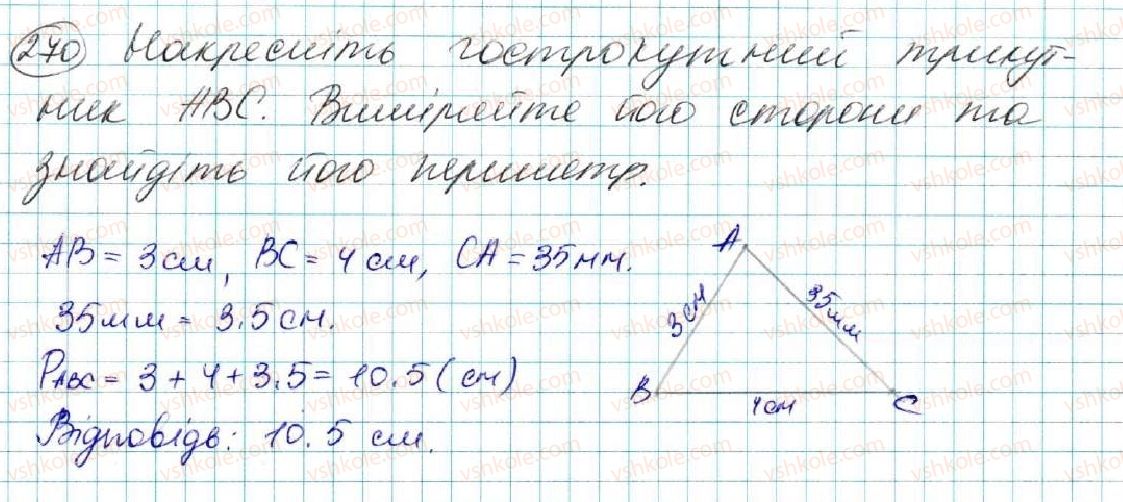 270 Накресліть гострокутний трикут-
ник АВС. Виміряйте його сторони та
знайдіть його периметр.
AB = 3 см, BC = 4 см, CA = 35 мм.
35 мм = 3.5 см.
P ABC = 3 + 4 + 3.5 = 10.5 (см)
Відповідь: 10.5 см.
A
3 см
35 мм
B
4 см
C
vshkole.com